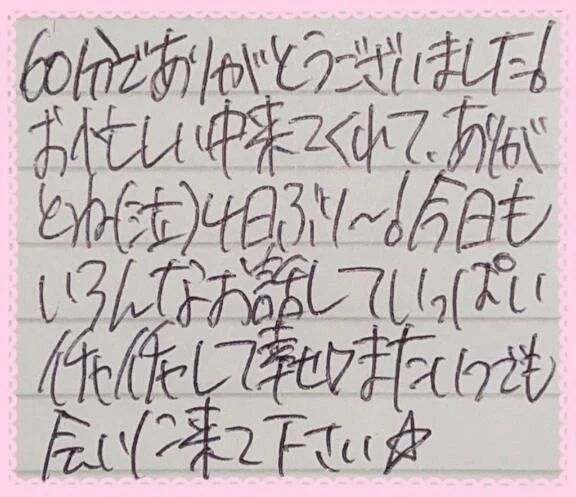 60分でありがとうございました!
お忙しい中来てくれて、ありが
とね(泣)4日ぶり〜!今日も
いろんなお話していっぱい
イチャイチャして幸せ♡またいつでも
会いに来て下さい☆